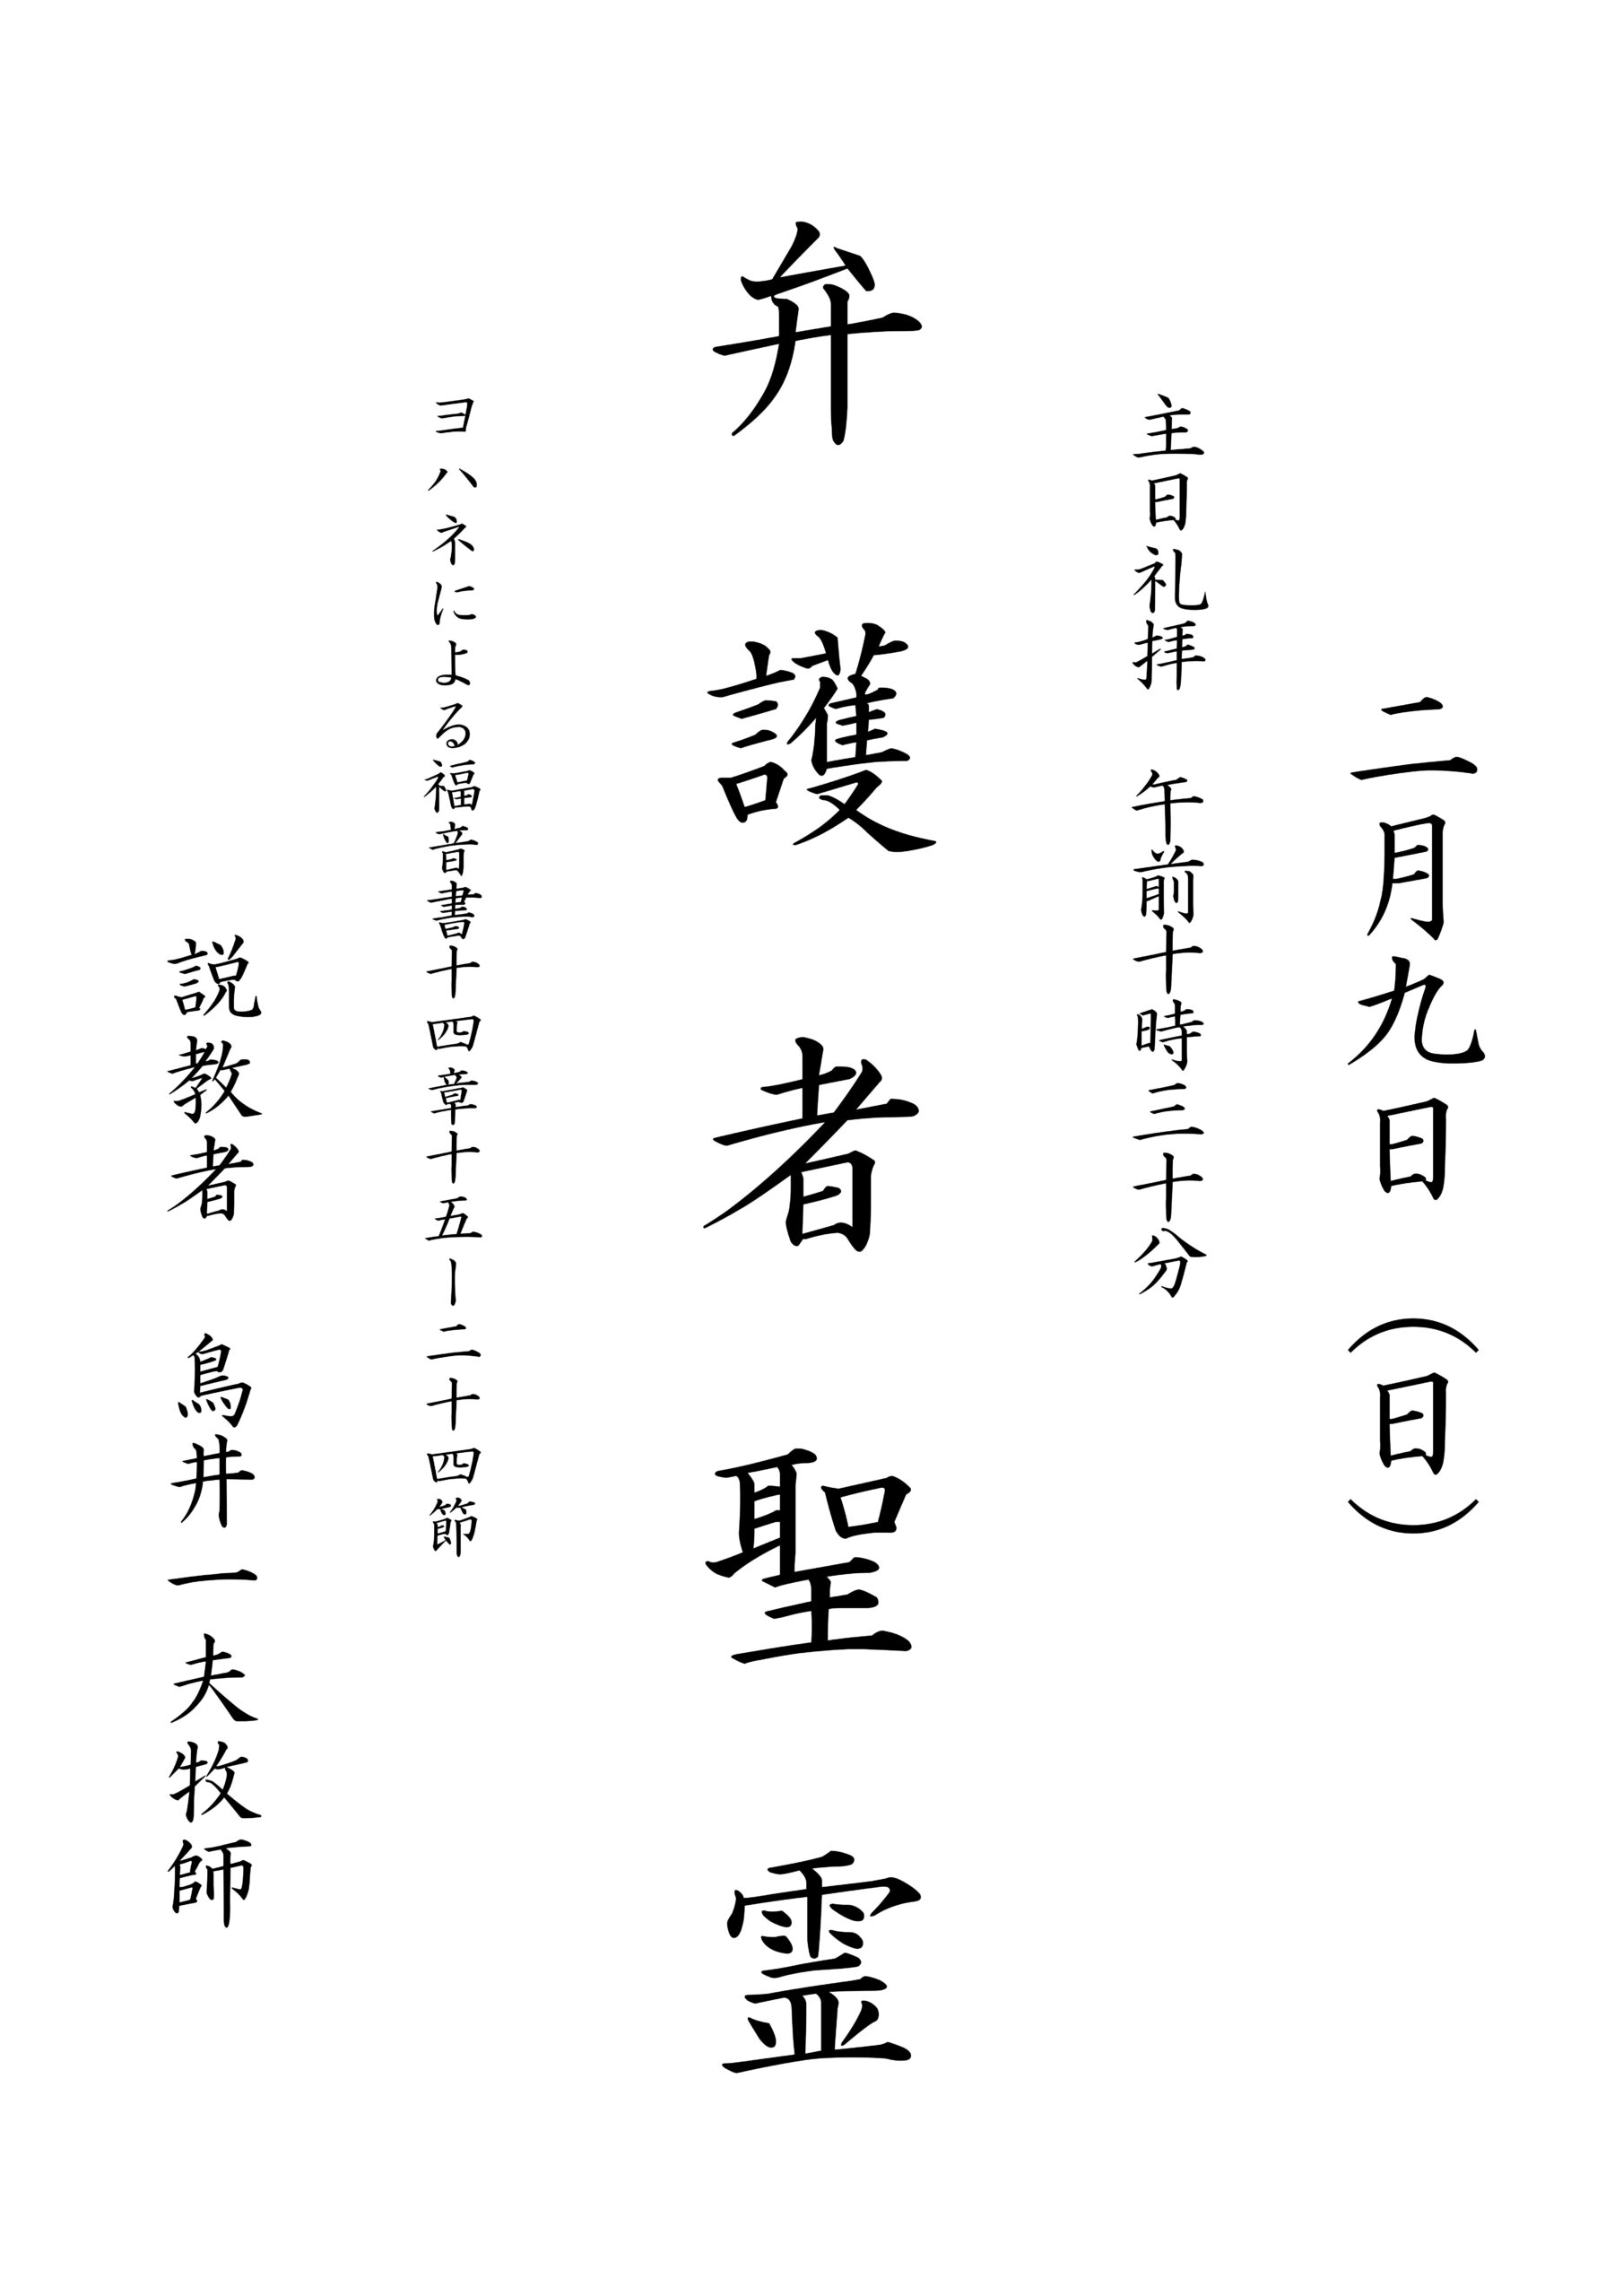 二月九日（日）
主日礼拝　午前十時二十分
弁護者聖霊
ヨハネによる福音書十四章十五―二十四節
説教者　鳥井一夫牧師